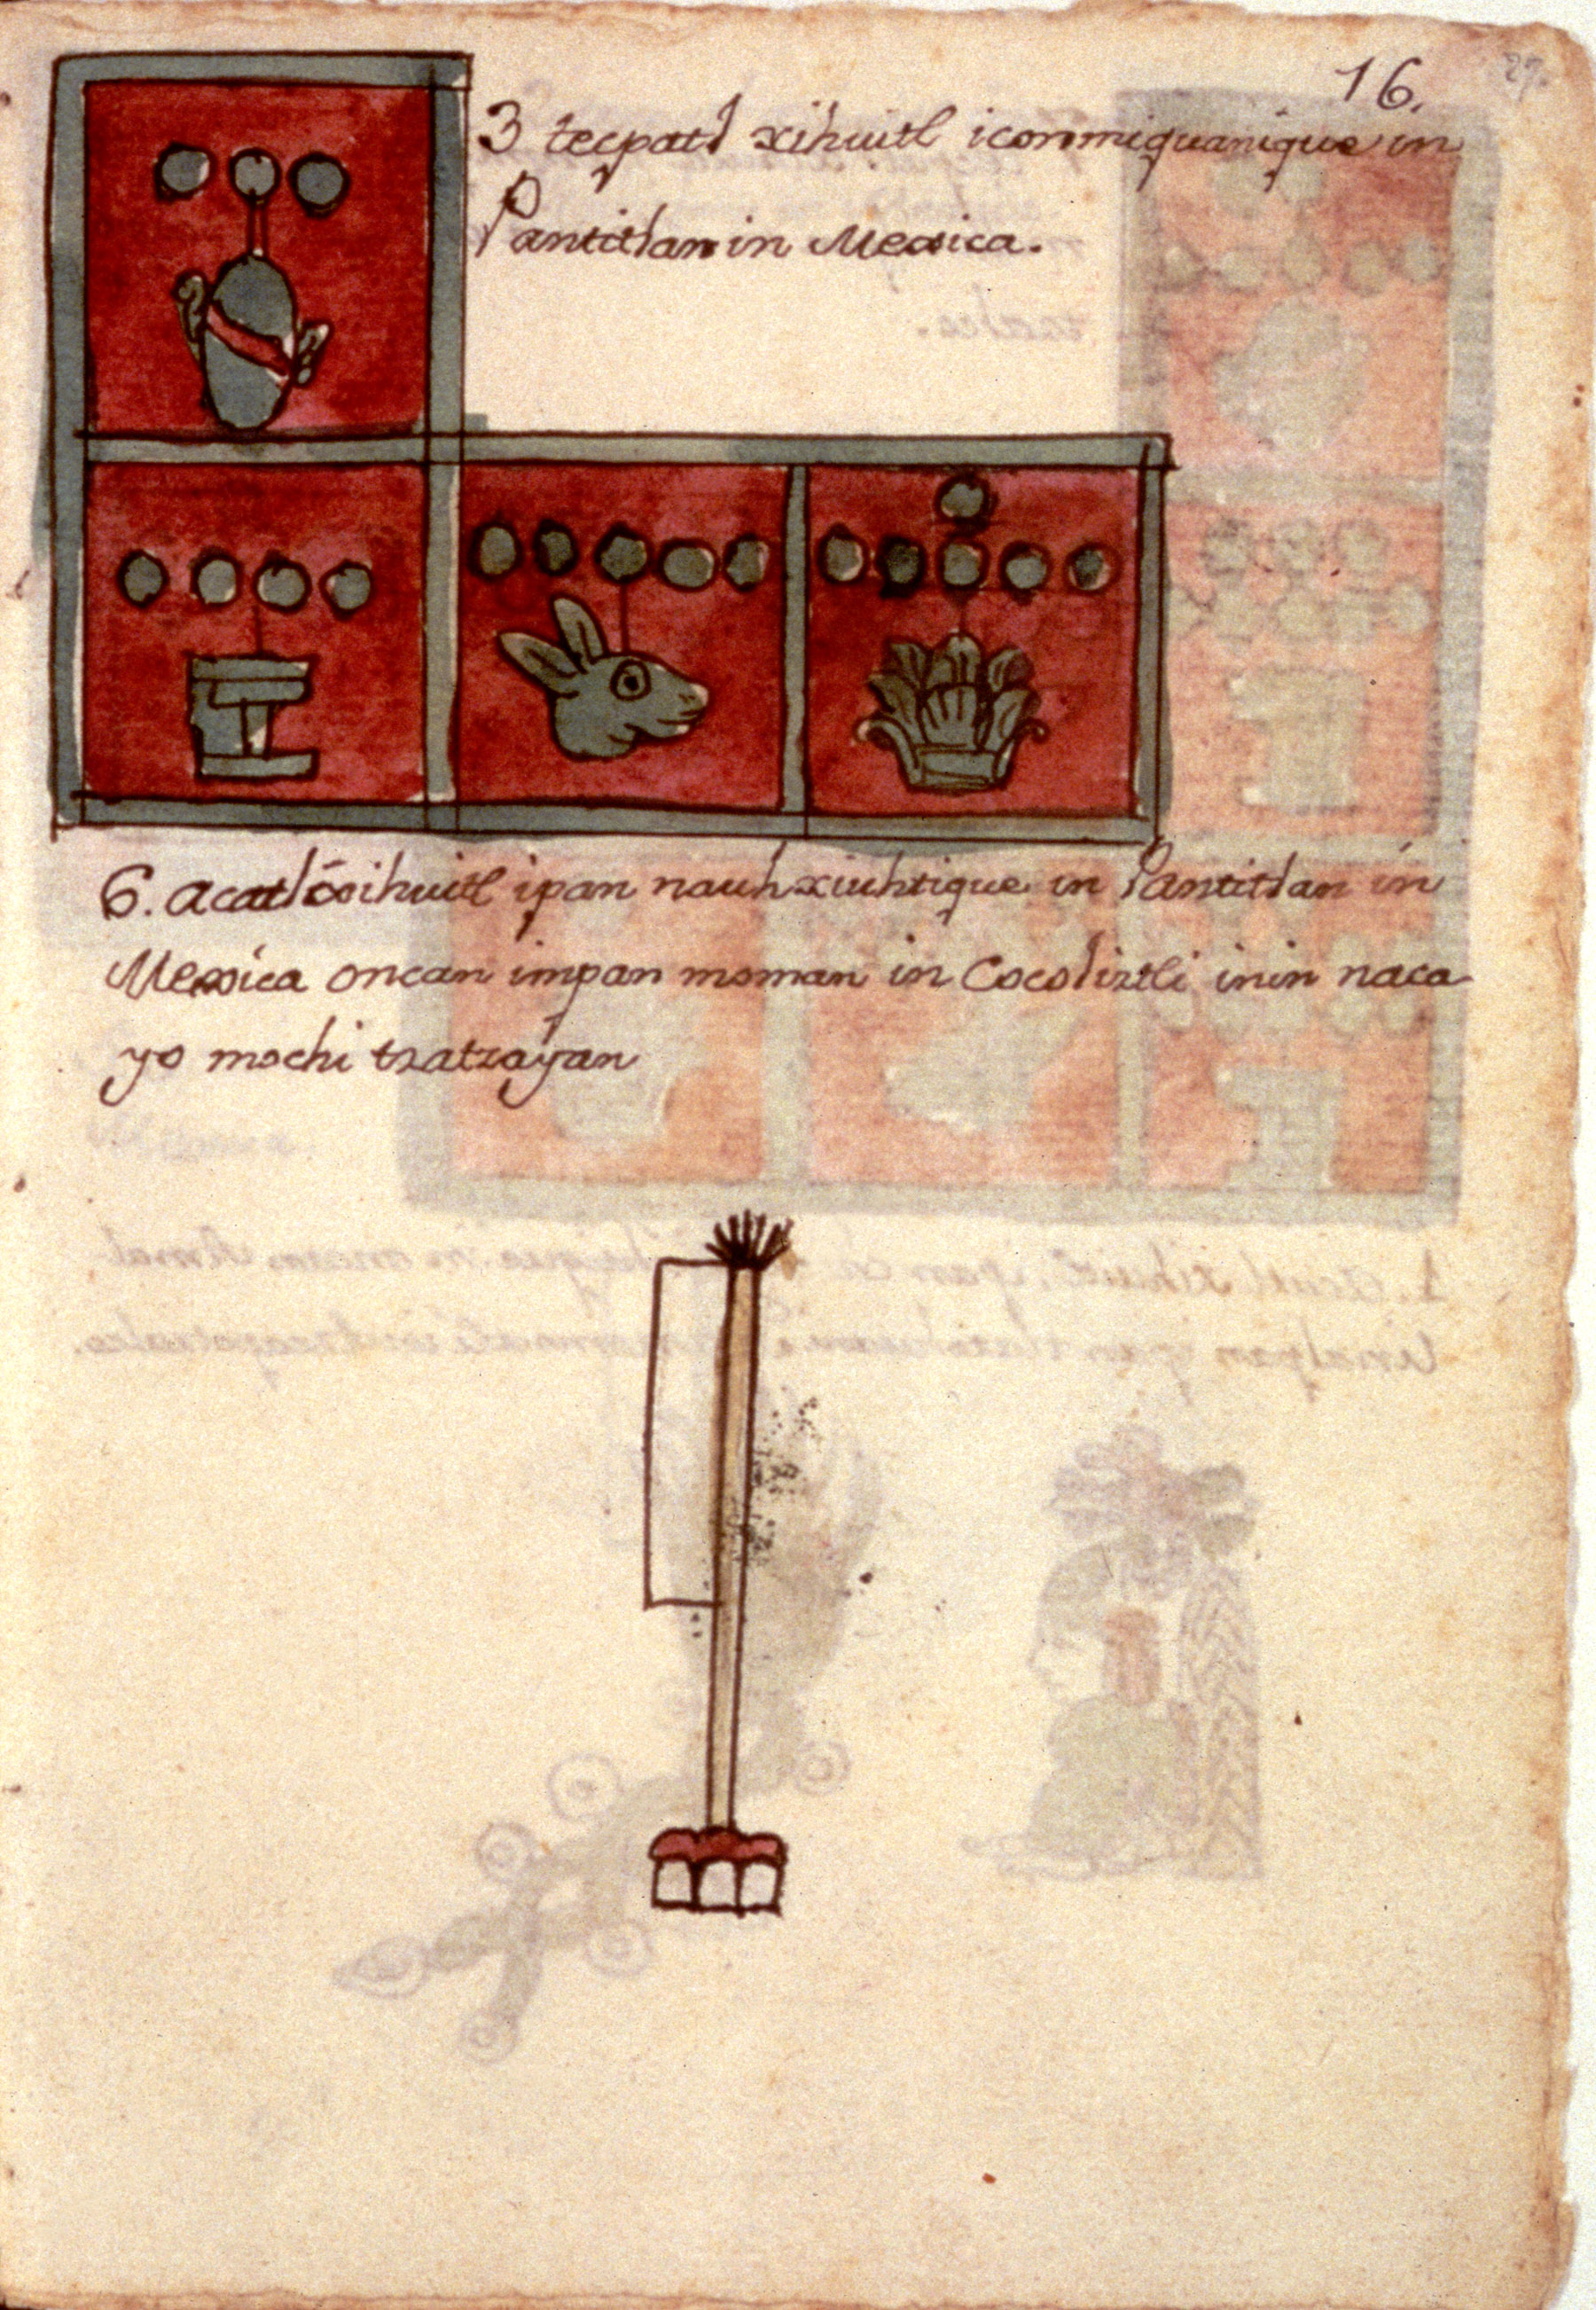 16.
27.
3 tecpatl xihuitl iconmiquanique in
Pantitlan in Mexica.
6. acatl xihuitl ipan nauhxiuhtique in Pantitlan in
Mexica oncan impan moman in Cocolixtli inin naca
yo mochi tzatzayan